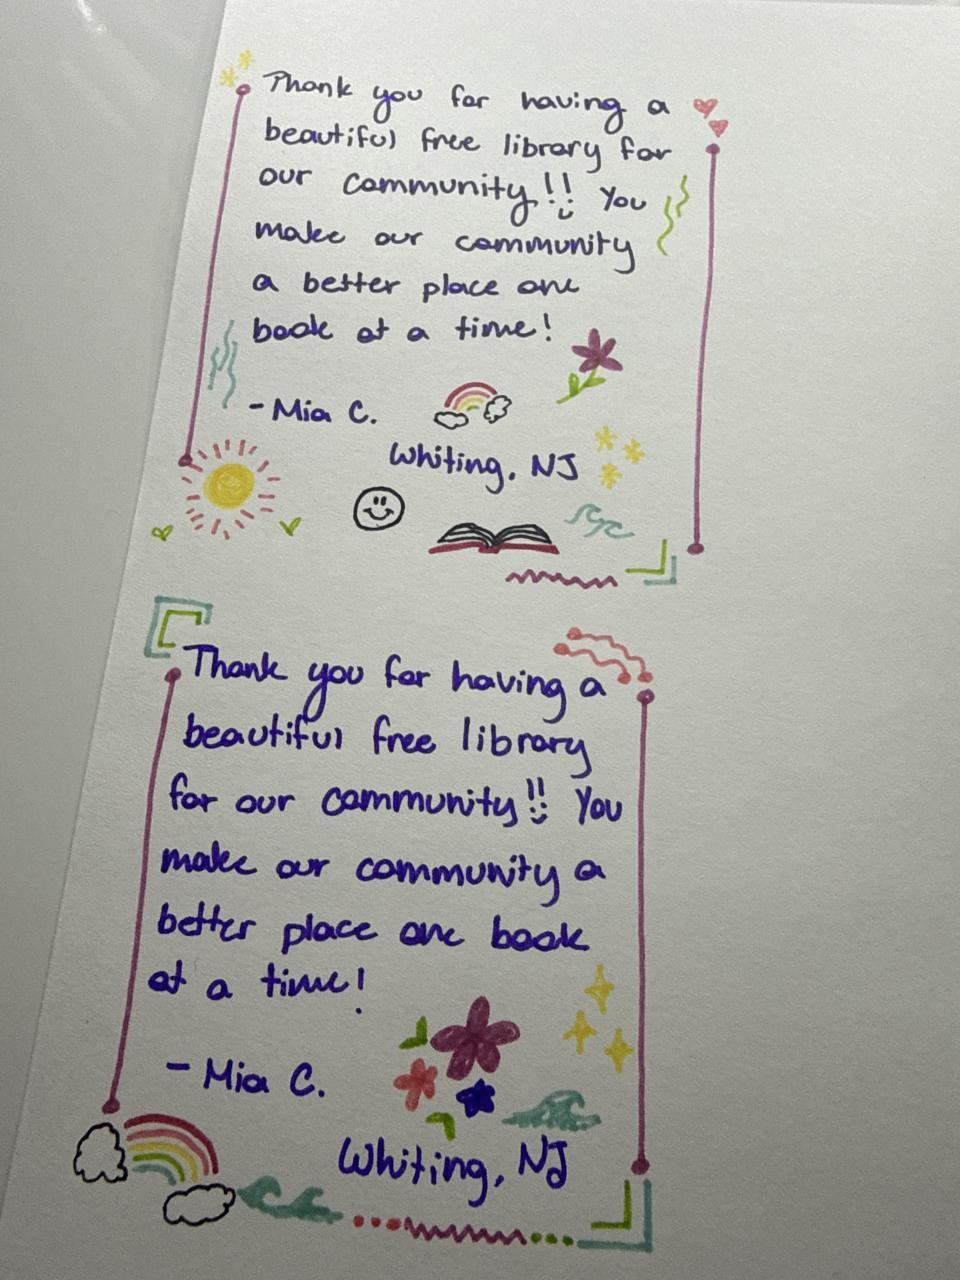 Thank you for having a
beautiful free library for
our community!! You
make our community
a better place one
book at a time!
- Mia C.
Whiting, NJ
Thank you for having a
beautiful free library
for our community!! You
make our community a
better place one book
at a time!
- Mia C.
Whiting, NJ